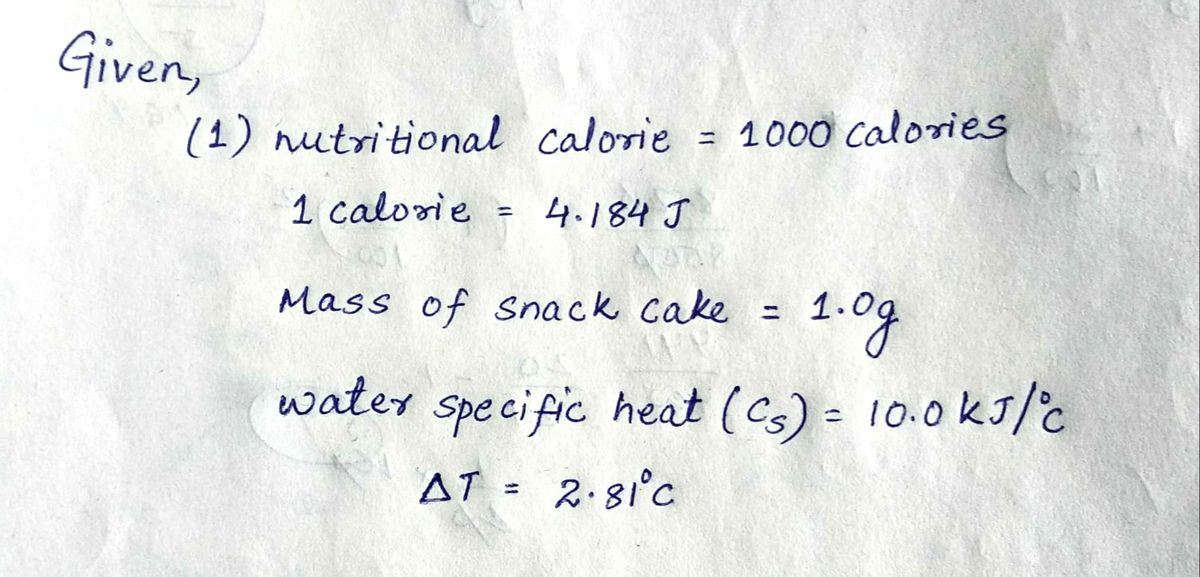 Given,
(1) nutritional calorie = 1000 calories
1 calorie = 4.184 J
Mass of snack cake = 1.0g
water specific heat (Cs) = 10.0 kJ/°c
ΔT = 2.81°C